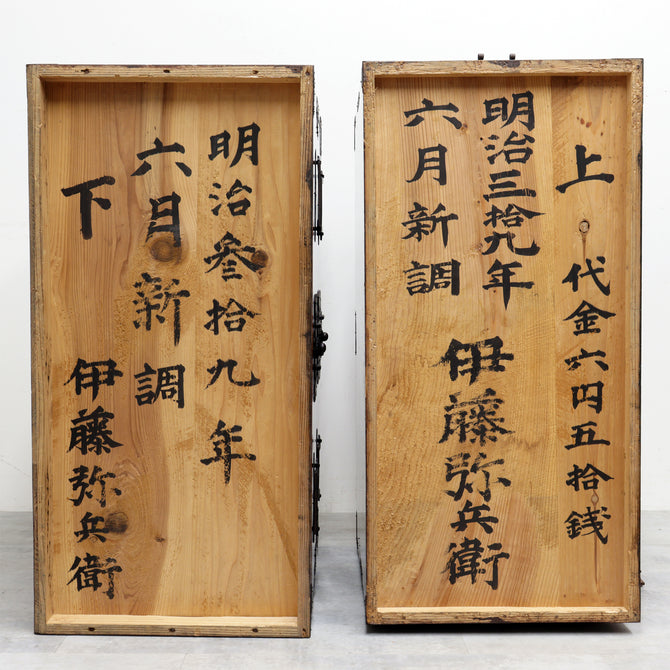 明治参拾九年
六月新調
下
伊藤弥兵衛
上
代金六円五拾銭
明治三拾九年
六月新調
伊藤弥兵衛